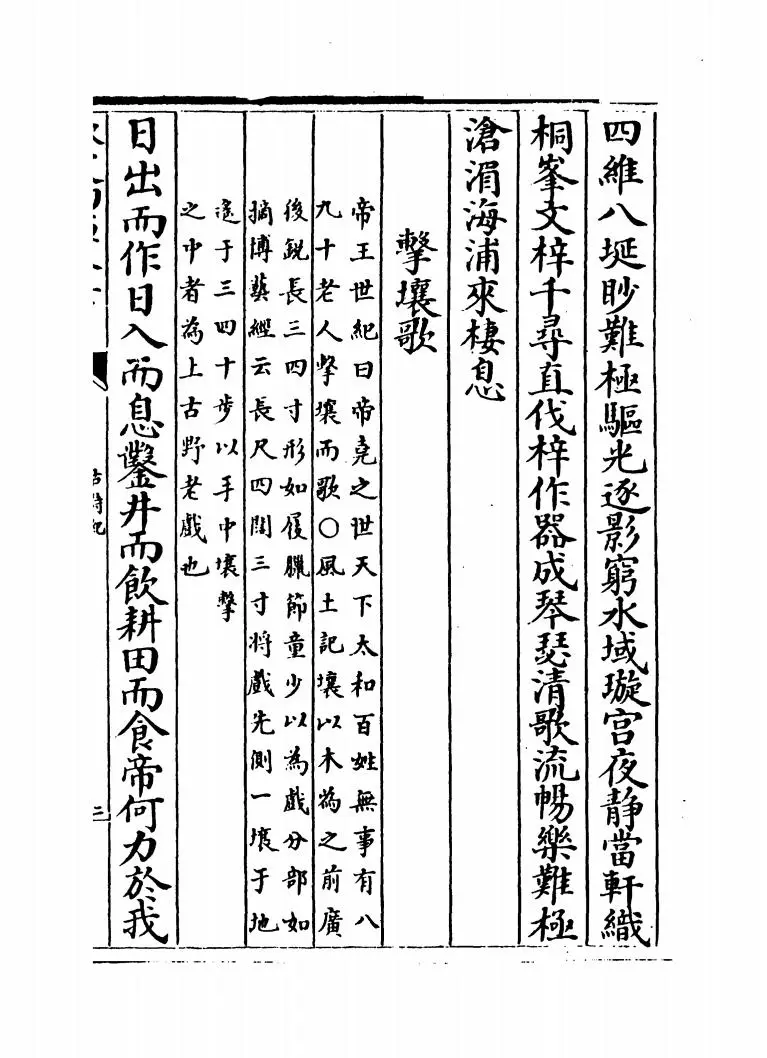 四維八埏眇難極驅光逐影窮水域璇宫夜靜當軒織
桐峯文梓千尋直伐梓作器成琴瑟清歌流暢樂難極
滄涓海浦來棲息
擊壤歌
帝王世紀曰帝堯之世天下太和百姓無事有八
九十老人擊壤而歌○風土記壤以木為之前廣
後鋭長三四寸形如履臘節童少以為戲分部如
摘博藝經云長尺四闊三寸將戲先側一壤于地
遥于三四十步以手中壤擊
之中者為上古野老戲也
日出而作日入而息鑿井而飲耕田而食帝何力於我
古詩紀
二